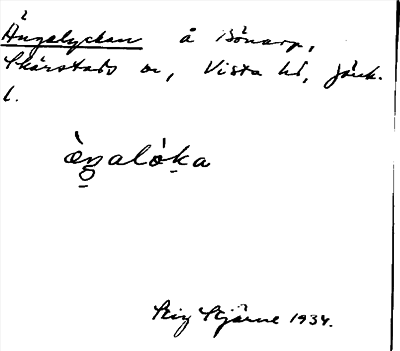 Ängalyckan å Bönarp,
Skärstads sn, Vista hd, Jönk.
l.
ængalóka
Stig Stjärne 1934.